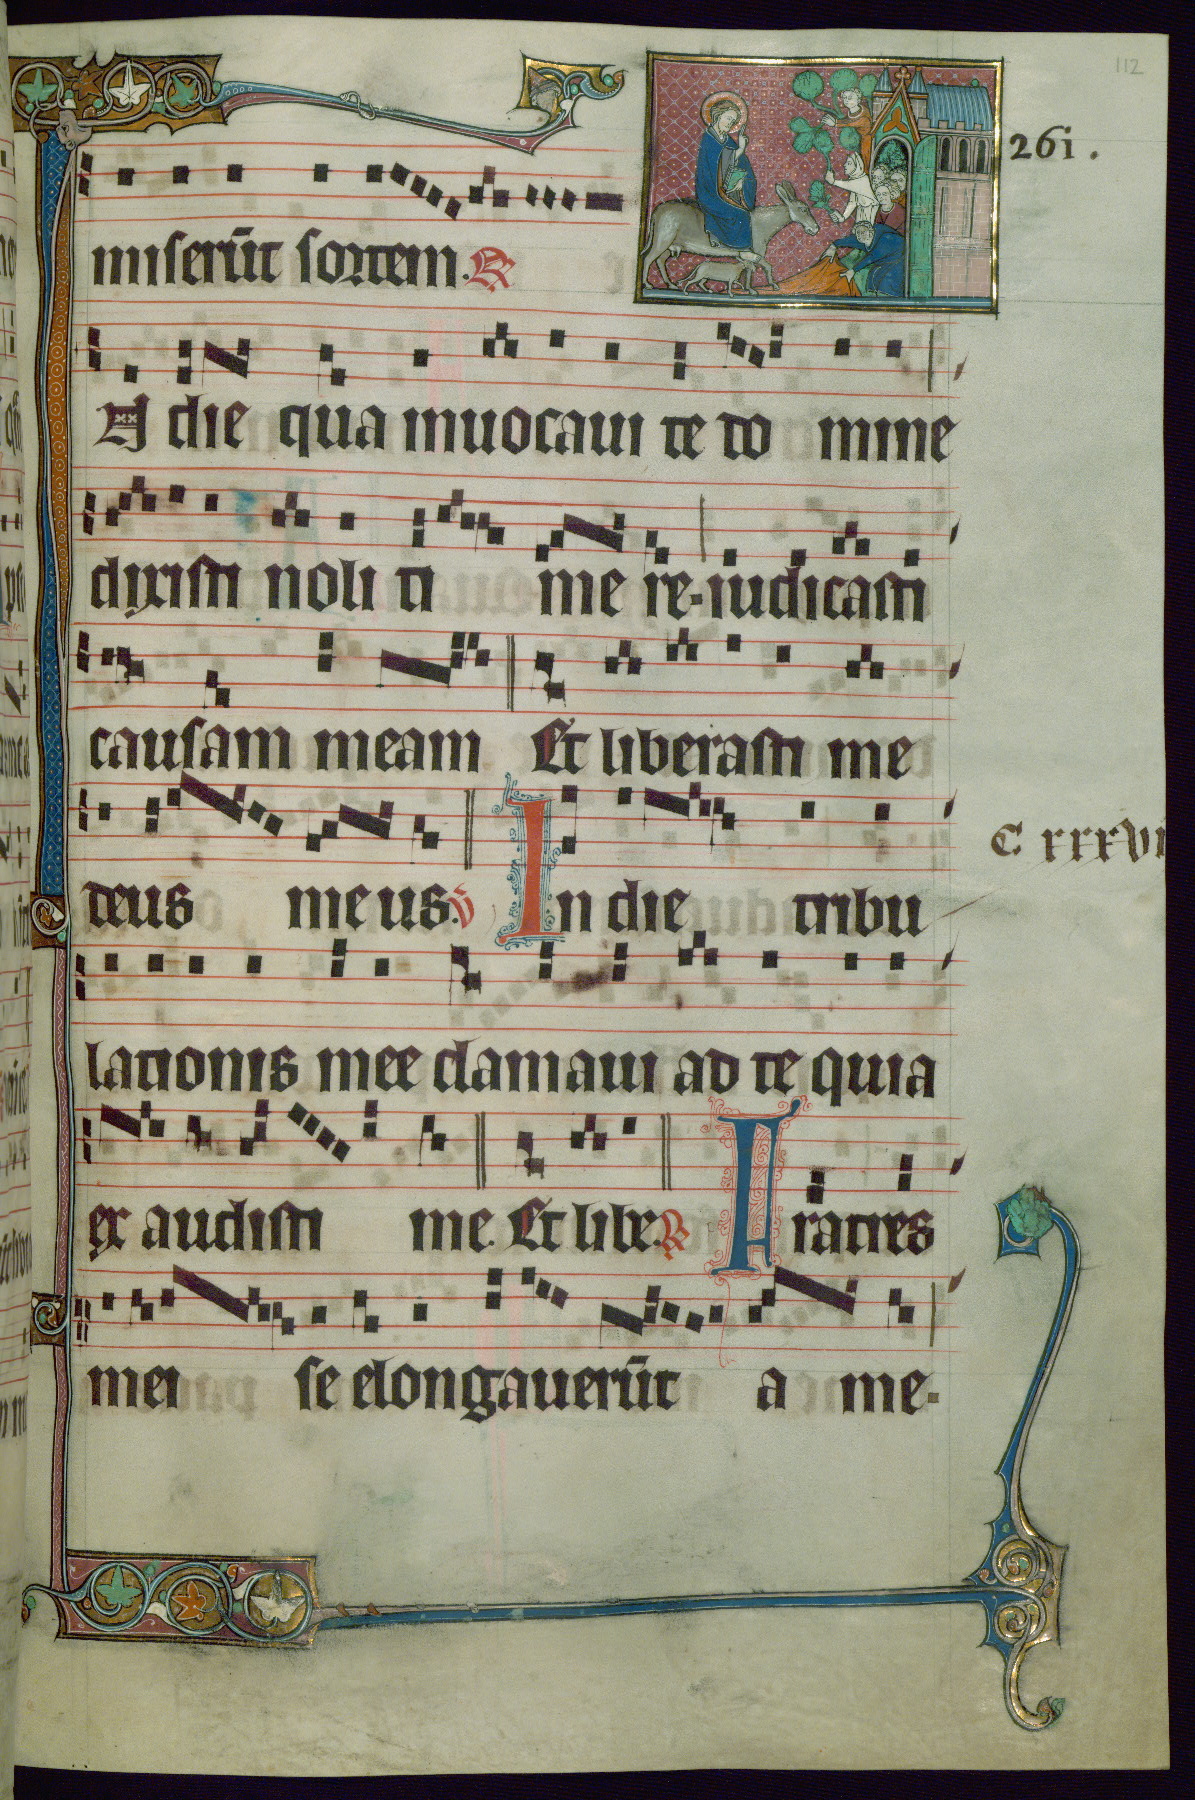 112
261.
miserūt sortem. R
A die qua inuocaui te do mine
dixisti noli ti me re-iudicasti
causam meam Et liberasti me
deus me us. V In die tribu
C xxxvi
lationis mee clamaui ad te quia
ex audisti me. Et libe. R Fratres
mei se elongauerūt a me-